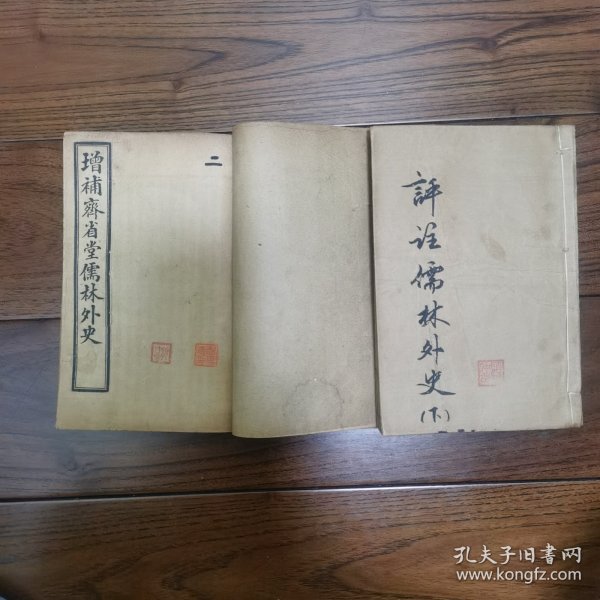 增補齊省堂儒林外史
二
評註儒林外史(下)
孔夫子旧书网
www.kongfz.com